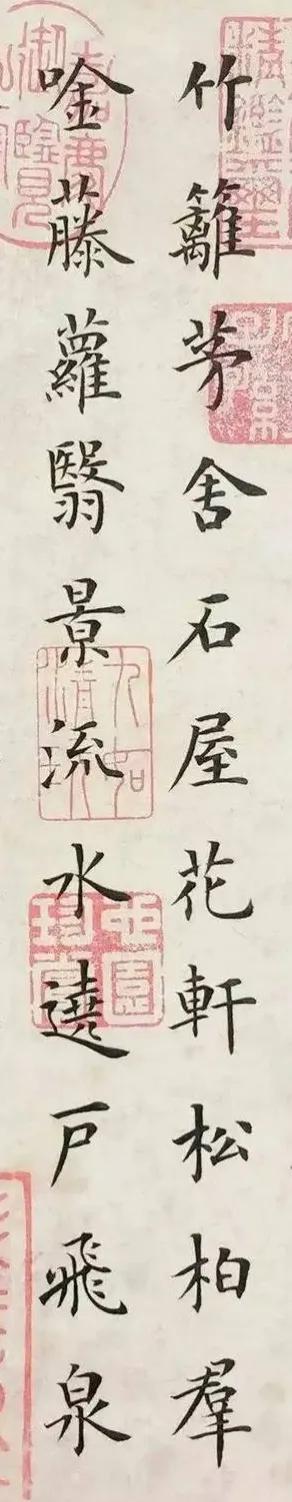 竹籬茅舍石屋花軒松柏羣
唫藤蘿翳景流水遶戶飛泉